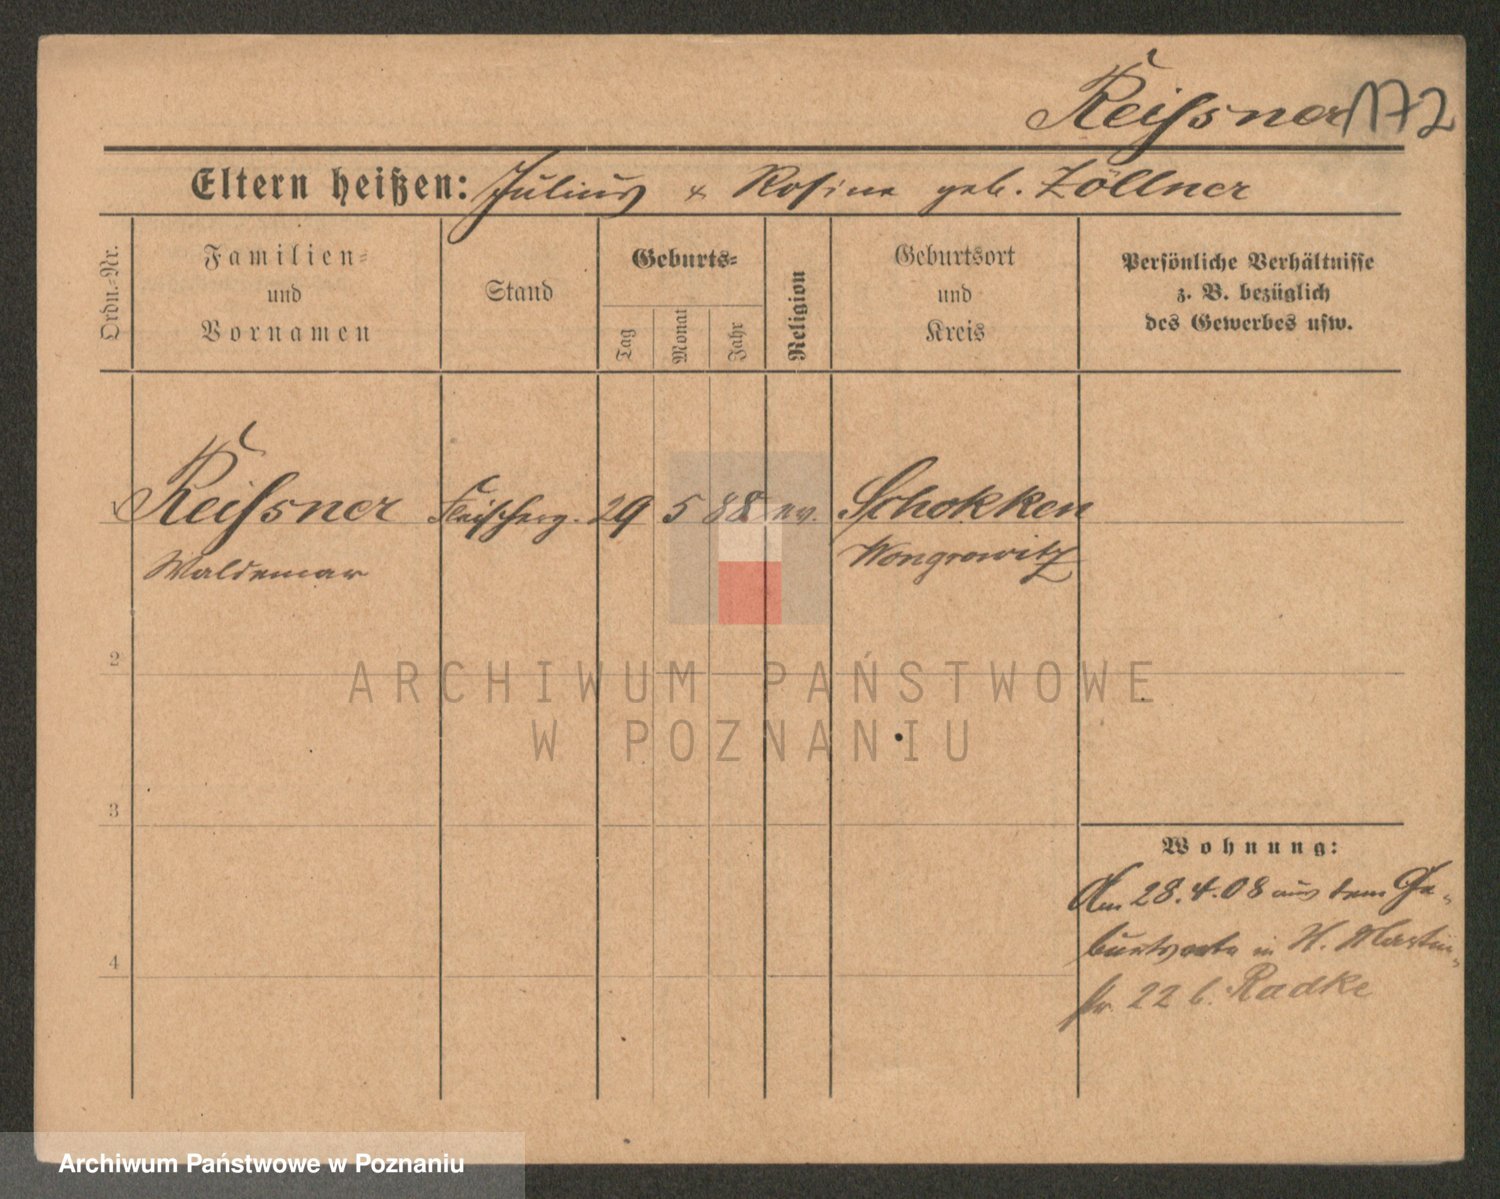 Reissner 172
Eltern heißen: Julius & Rosine geb. Zöllner
Ordn.-Nr.
Familien-
und
Vornamen
Stand
Geburts-
Tag
Monat
Jahr
Religion
Geburtsort
und
Kreis
Persönliche Verhältnisse
z. B. bezüglich
des Gewerbes usw.
Reissner Fleischerg. 29 5 88 ev. Schokken
Waldemar Wongrowitz
2
3
4
Wohnung:
Am 28.4.08 aus dem Ge-
burtsorte in H. Martin-
str. 22 b. Radke
ARCHIWUM PAŃSTWOWE
W POZNANIU
Archiwum Państwowe w Poznaniu